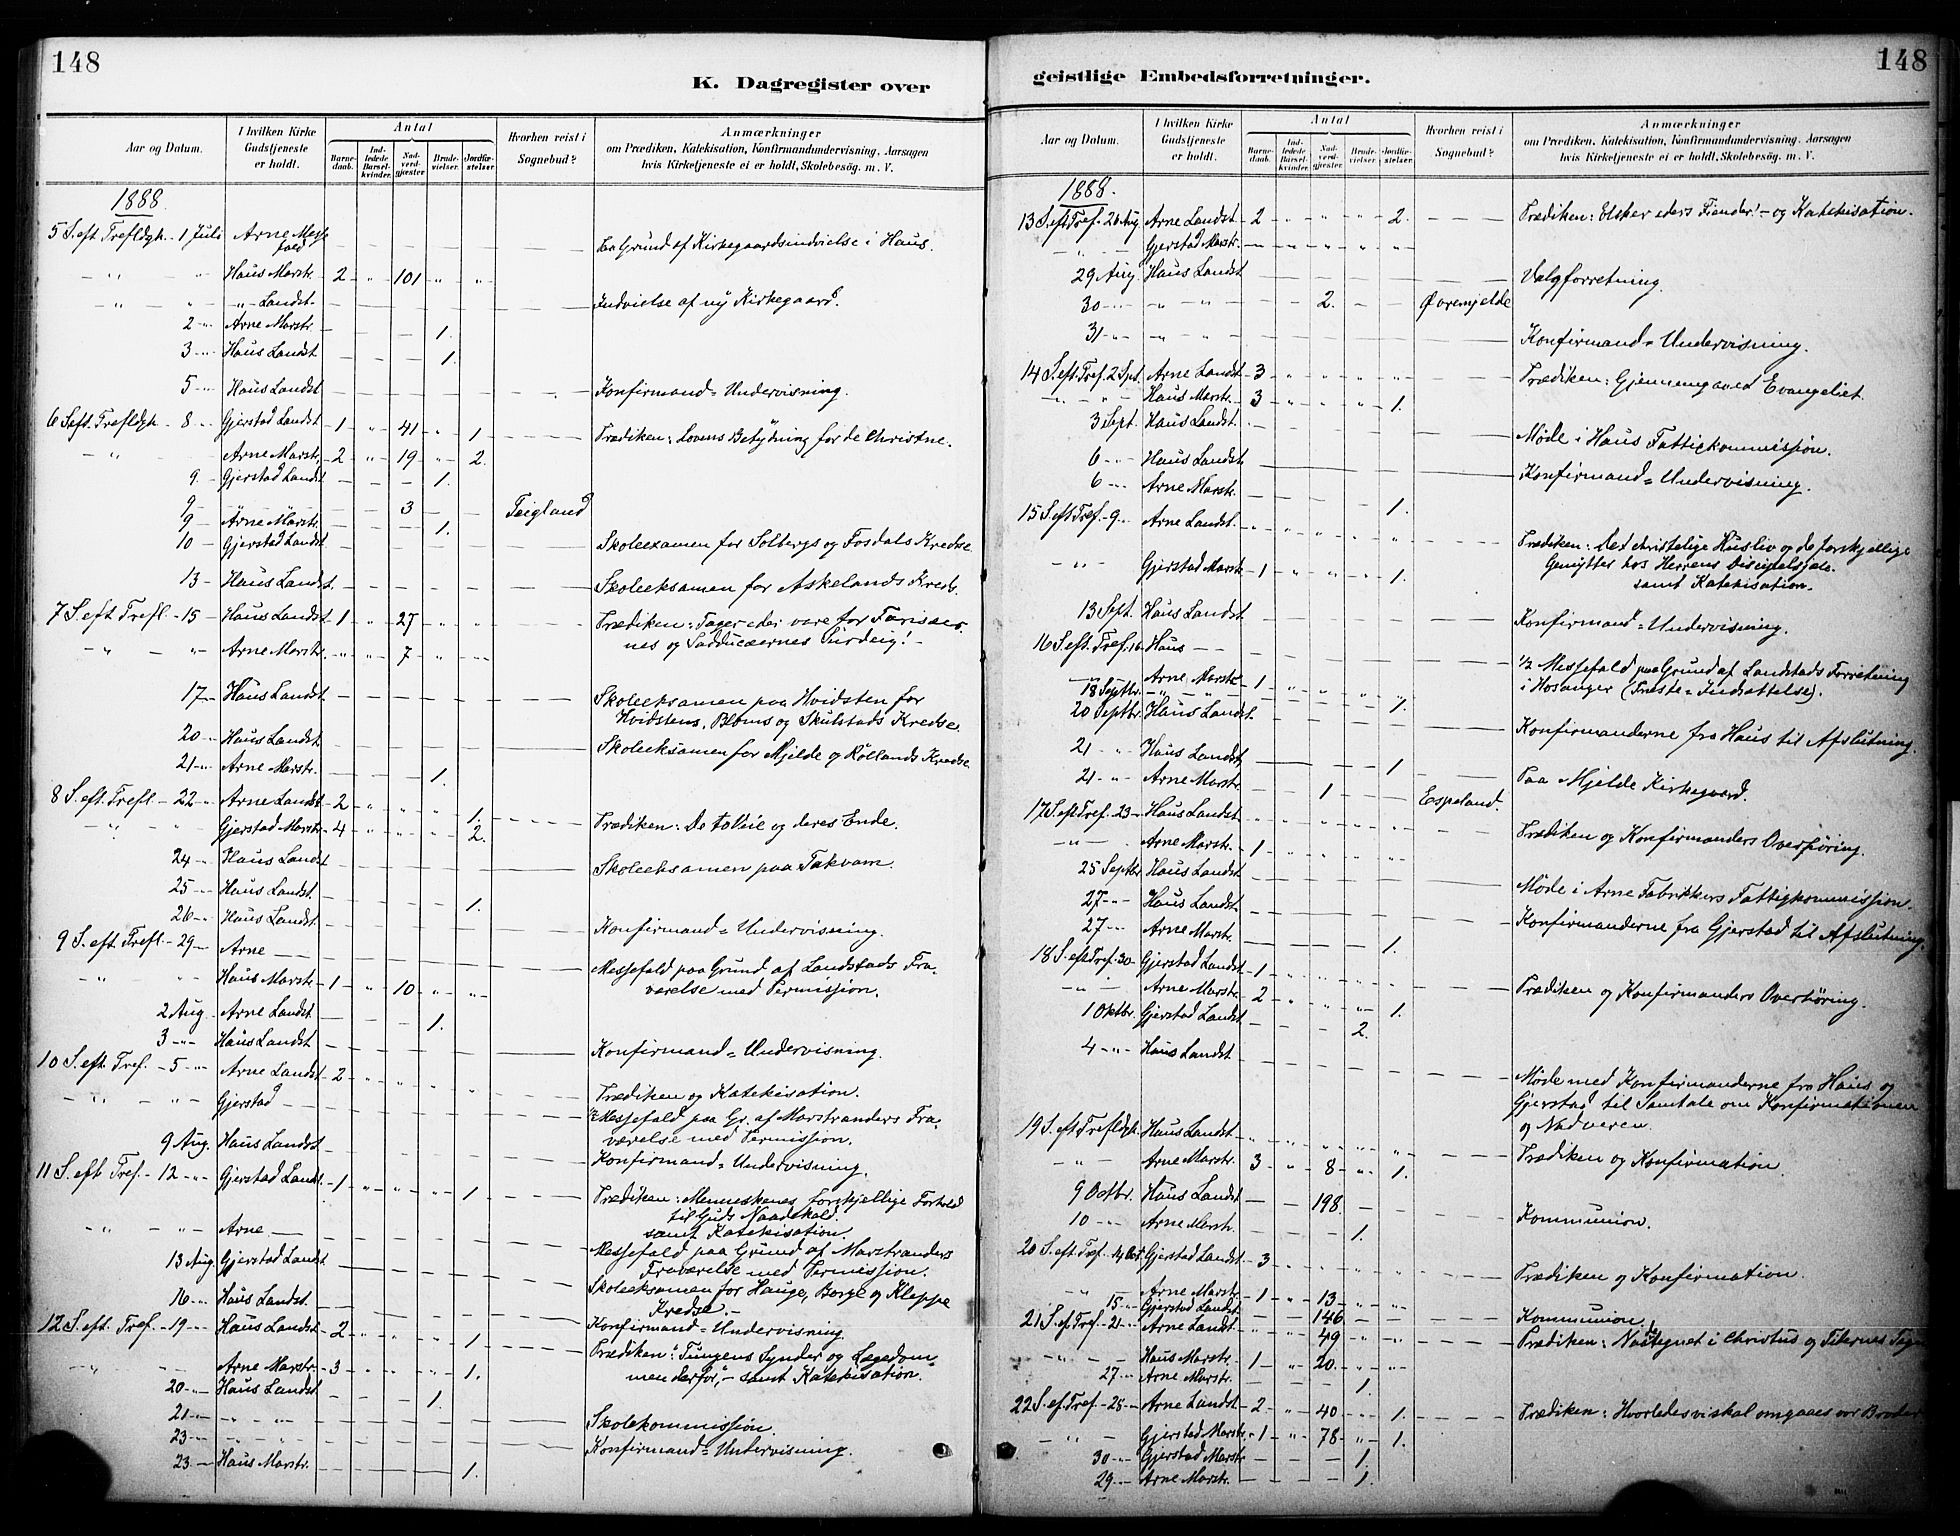 148
K. Dagregister over
Aar og Datum. I hvilken Kirke Gudstjeneste er holdt. Antal Barnedaab. Indledede Barselkvinder. Nadverdgjester. Brudevielser. Jordfæstelser. Hvorhen reist i Sognebud? Anmærkninger om Prædiken, Katekisation, Konfirmandundervisning, Aarsagen hvis Kirketjeneste ei er holdt, Skolebesøg. m. V.
1888
5 S. eft. Trefldgh. 1 Juli Arne Messefald — — — — — — paa Grund af Kirkegaardsindvielse i Haus.
— " " Haus Marstr. 2 " 101 " "
— " " " Landst. — — — — — — Indvielse af ny Kirkegaard.
2 — Arne Marstr. — — — 1.
3 " Haus Landst — — — 1.
5 — Haus Landst — — — — — — Konfirmand = Undervisning.
6 S. eft. Trefldgh. 8 — Gjerstad Landst 1 " 41 " 1 — Prædiken: Lovens Betydning for de Christne.
— " Arne Marstr. 2 " 19 " 2.
9 — Gjerstad Landst — — — 1.
9 — — — 3 — — Teigland
9 — Arne Marstr. — — — 1.
10 — Gjerstad Landst — — — — — — Skoleexamen for Solbergs og Fosdals Kredse
13 — Haus Landst. — — — — — — Skoleeksamen for Askelands Kreds.
7 S. eft Trefl. — 15 — Haus Landst 1 " 27 " " — Prædiken: Tager eder vare for Farisæernes og Sadducæernes Surdeig! —
— " — " Arne Marstr. " " 7 " "
17 — Haus Landst — — — — — — Skoleeksamen paa Hvidsten for
Hvidstens, Bloms og Skulstads Kredse.
20 — Haus Landst — — — — — — Skoleeksamen for Mjelde og Röllands Kredse
21 " Arne Marstr. — — — 1.
8 S. eft. Trefl. — 22 " Arne Landst 2 " " " 1. — Prædiken: De to Veie og deres Ende.
— " " Gjerstad Marstr 4 " " " 2.
24 — Haus Landst — — — — — — Skoleeksamen paa Takvam.
25 — Haus Landst. — — — — 1.
26 " Haus Landst. — — — — — — Konfirmand = Undervisning.
9 S. eft Trefl — 29 — Arne — — — — — — Messefald paa Grund af Landstads Fraværelse med Permission.
— " " " Haus Marstr 1 " 10 " "
2 Aug. Arne Landst. — — — 1.
3 " Haus Landst — — — — — — Konfirmand = Undervisning.
10 S. eft. Tref. — 5 " Arne Landst 2 " " " " — Prædiken og Katekisation.
— " — " " Gjerstad — — — — — — Messefald paa Gr. af Marstranders Fraværelse med Permission.
9 Aug. Haus Landst — — — — — — Konfirmand = Undervisning.
11 S. eft Tref — 12 " Gjerstad Landst. 1 " " " 1 — Prædiken: Menneskenes forskjellige Forhold
til Guds Naadskald.
samt Katekisation.
" " — " — Arne — — — — — — Messefald paa Grund af Marstranders
Fraværelse med Permission.
13 Aug Gjerstad Landst — — — — — — Skoleeksamen for Hauge, Borge og Kleppe
Kredse. —
16 " Haus Landst. — — — — — — Konfirmand = Undervisning
12 S. eft. Tref. — 19 — Haus Landst 2 " " " 1 — Prædiken: Tungens Synder og Lægedommen derfor, — samt Katekisation.
" " Arne Marstr. 3 " " " 1.
20 " Haus Landst — — — 1.
21 — " — — — — — — Skolekommission.
23 — " " — — — — — — Konfirmand = Undervisning.
23 — Haus Marstr. — — — — 1.
148
geistlige Embedsforretninger.
Aar og Datum. I hvilken Kirke Gudstjeneste er holdt. Antal Barnedaab. Indledede Barselkvinder. Nadverdgjester. Brudevielser. Jordfæstelser. Hvorhen reist i Sognebud? Anmærkninger om Prædiken, Katekisation, Konfirmandundervisning, Aarsagen hvis Kirketjeneste ei er holdt, Skolebesøg. m. V.
1888.
13 S. eft Tref. 26 Aug Arne Landst 2 " " " 2. — Prædiken: Elsker eders Fiender! — og Katekisation.
— " — Gjerstad Marstr. — — " " "
29 Aug Haus Landst — — — — — — Valgforretning.
30 — " " — — 2. — — Øvremjelde
31 — " — " — — — — — — Konfirmand = Undervisning.
14 S. eft. Tref. 2 Spt. Arne Landst 3 " " " " — Prædiken: Gjennemgaaed Evangeliet.
— " — " Haus Marstr. 3 " " " 1.
3 Sept. Haus Landst. — — — — — — Møde i Haus Fattigkommission.
6 — Haus Landst. — — — — — — Konfirmand = Undervisning.
6 — Arne Marstr. — — — — 1.
15 S. eft Tref — 9 " Arne Landst. " " " " " — Prædiken: Det christelige Husliv og de forskjellige
Gemytter hos Herrens Discipelsjæle.
samt Katekisation.
— " " — Gjerstad Marstr 1 " " " 1.
13 Sept. Haus Landst — — — — — — Konfirmand = Undervisning.
16 S. eft. Tref. 16 — Haus — — — — — — ½ Messefald paa Grund af Landstads Forretning
i Hosanger (Præste = Indsættelse).
— Arne Marstr 1 " " " "
18 Septbr. — " — " — — — — 1.
20 Septbr. Haus Landst. — — — — — — Konfirmanderne fra Haus til Afslutning.
21 — " Haus Landst. — — — — 1 — Paa Mjelde Kirkegaard.
21 — " Arne Marstr. — — 1 — — Espeland.
17 S. eft Tref — 23 — Haus Landst " " " " " — Prædiken og Konfirmanders Overhøring.
— " — Arne Marstr. 1 " " " "
25 Septbr Haus Landst — — — — — — Møde i Arne Fabrikkers Fattigkommission.
27 — " Haus Landst — — — — — — Konfirmanderne fra Gjerstad til Afslutning.
27 — " Arne Marstr. — — — — 1.
18 S. eft Tref. 30 — Gjerstad Landst 1 " " " " — Prædiken og Konfirmanders Overhöring.
— " — Arne Marstr. 2 " " " 1.
1 Oktbr. Gjerstad Landst — — — 2.
4 — " Haus Landst — — — — — — Møde med Konfirmanderne fra Haus og
Gjerstad til Samtale om Konfirmationen
og Nadveren.
19 S. eft. Trefldgh. Haus Landst. " " " " " — Prædiken og Konfirmation
— " — Arne Marstr. 3 " 8 " 1.
9 Octbr. Haus Landst — — 198. — — — Kommunion.
10 — " Arne Marstr. — — — 1.
20 S. eft Tref. 14 Oct. Gjerstad Landst. 3 " " " " — Prædiken og Konfirmation.
" Arne Marstr. 1 " 13 " "
15 — " Gjerstad Landst. — — 146 — — — Kommunion
21 S. ef Tref — 21 — Arne Landst. " " 49 " " — Prædiken: Naategnet i Christus og Tidernes Tegn
— " — — Haus Marstr. 1 " 20. " "
27 — Arne Marstr. — — — 1.
22 S. ef. Tref. — 28 — Arne Landst 2 " 40 " 1. — Prædiken: Hvorledes vi skal omgaaes vor Broder
— " — " — Gjerstad Marstr. 1 " 78 " 1.
30 — Gjerstad Marstr — — — 1.
29 — Arne Marstr. — — — 1.